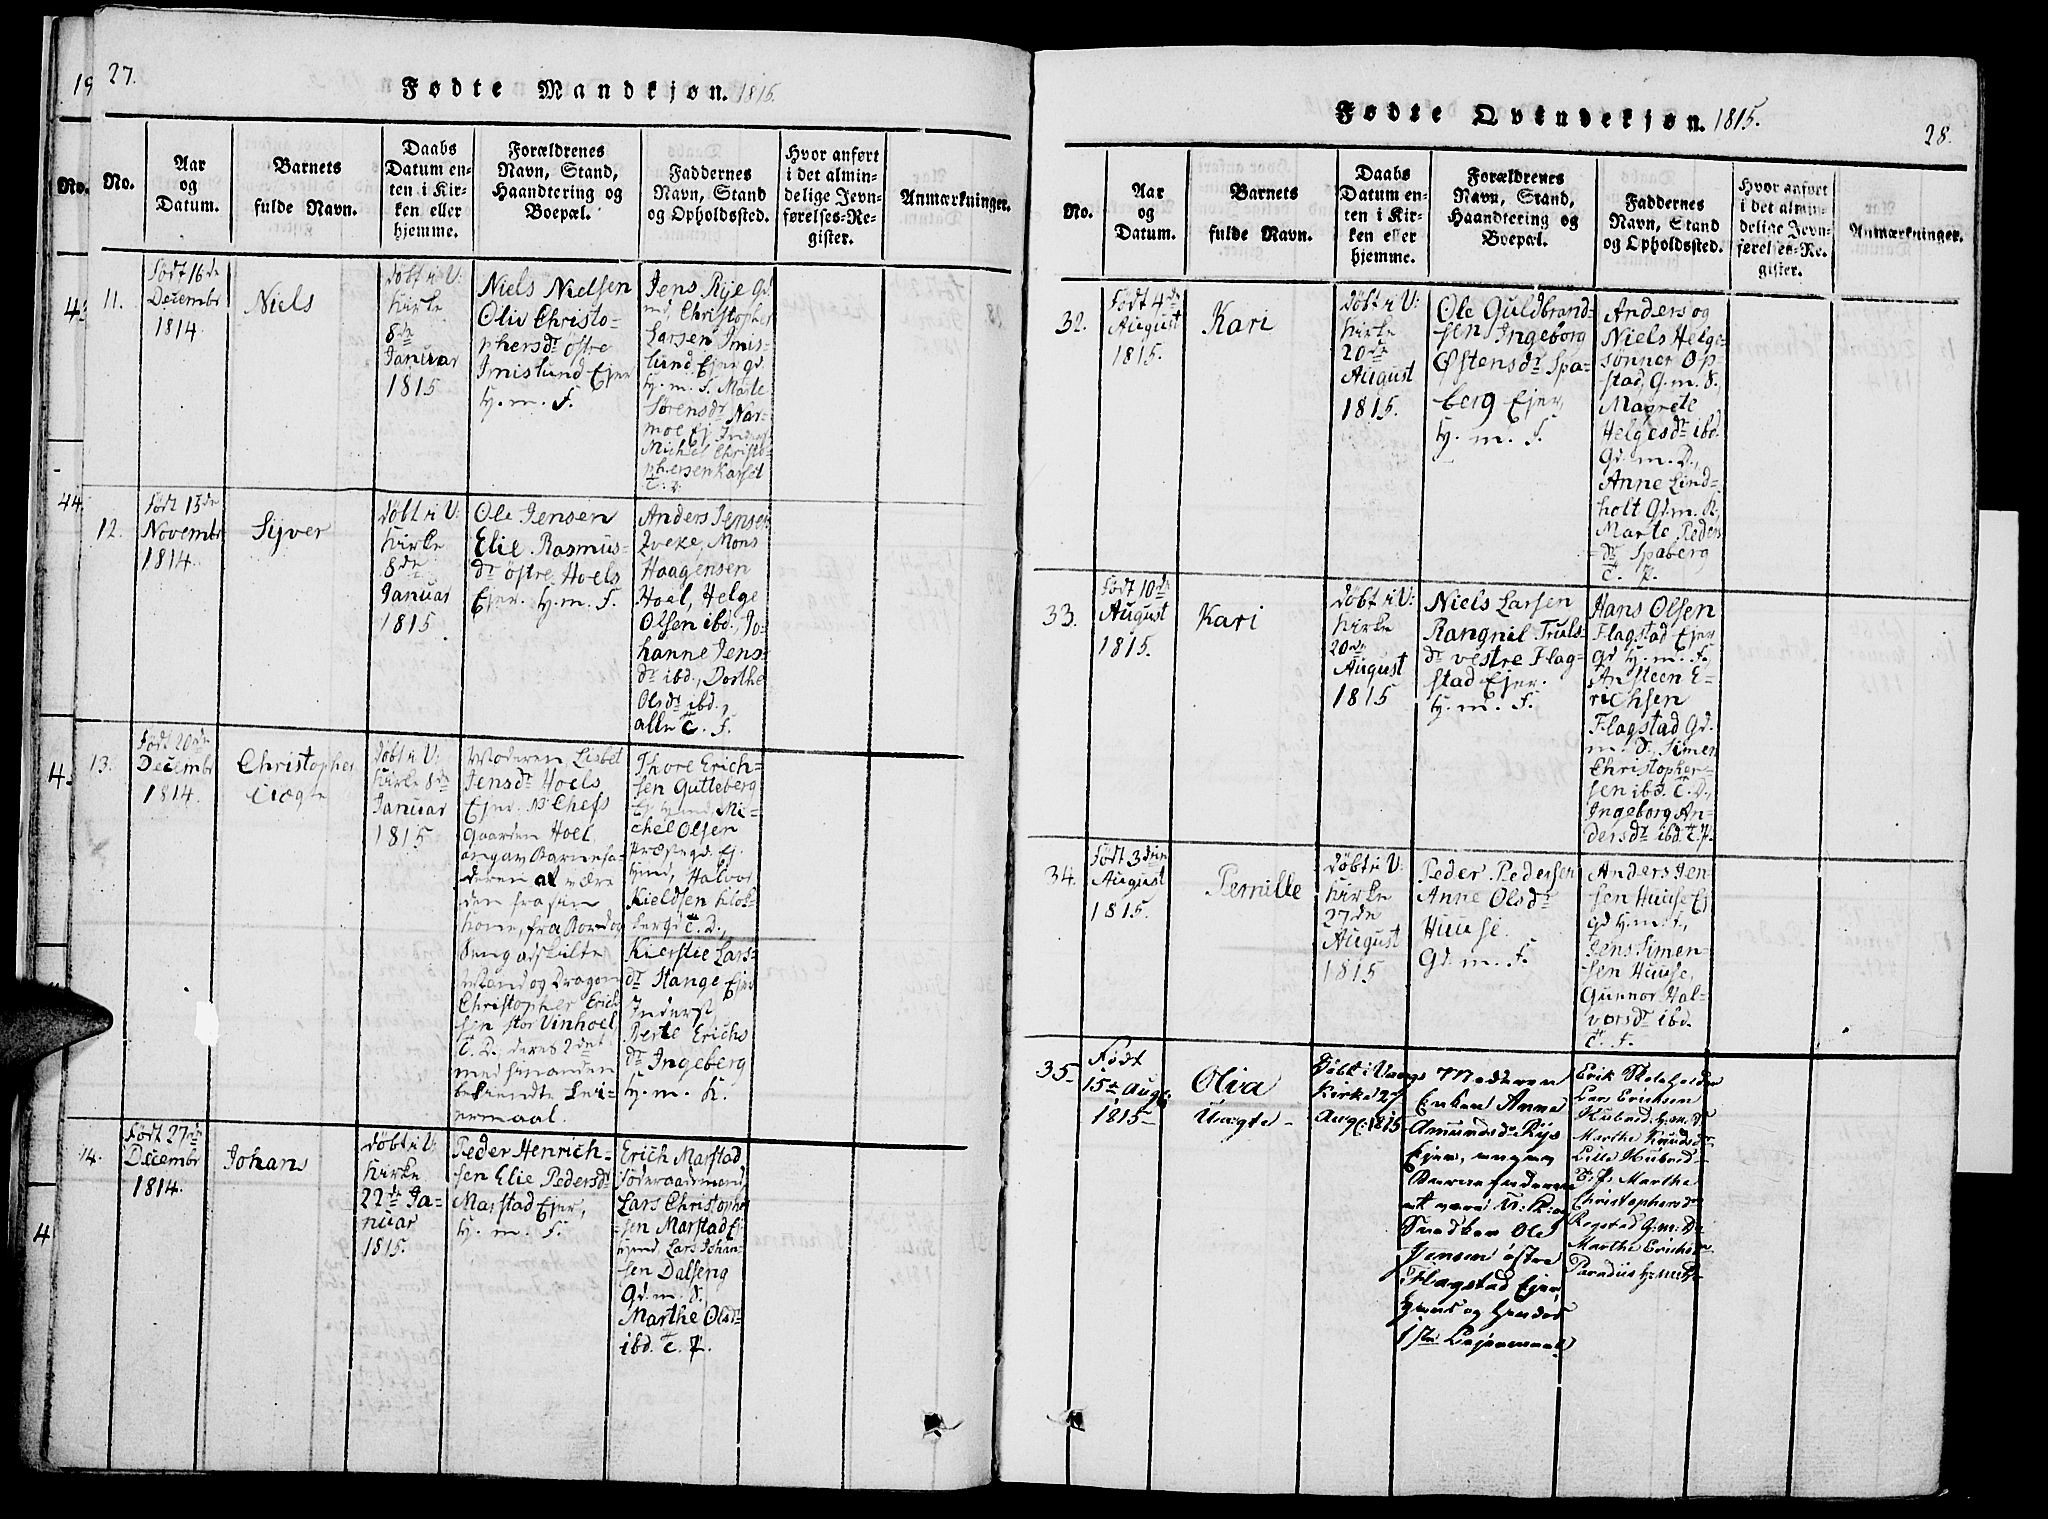 19
No.
43
44.
27.
Fødte Mandkjøn. 1815.
No.
Aar
og
Datum.
Barnets
fulde Navn.
Daabs
Datum en-
ten i Kir-
ken eller
hjemme.
Forældrenes
Navn, Stand,
Haandtering og
Boepæl.
Faddernes
Navn, Stand
og Opholdssted.
Hvor anført
i det almin-
delige Jevn-
førelses-Re-
gister.
Anmærkninger.
11.
Født 16de
Decembr
1814.
Niels
døbt i V:
Kirke
8de
Januar
1815
Niels Nielsen
Oliv Christo-
phersdr østre
Imislund Ejer
H. m. F.
Jens Rye Gd
md, Christopher
Larsen Imis-
lund Ejer gd.
H. m. F. Marte
Sørensdr Nar-
moe Ej. Inderst
Michel Christo-
phersen Karset
T. D.
12.
Født 15de
Novembr
1814.
Syver
døbt i V:
Kirke
8de
Januar
1815
Ole Jensen
Elie Rasmus-
dr østre Hoels
Ejer. H. m. F.
Anders Jensen
Qveke, Mons
Haagensen
Hoel, Helge
Olsen ibd., Jo-
hanne Jens-
dr ibd., Dorthe
Olsdr ibd.,
alle T. F.
13.
Født 20de
Decembr
1814.
Christopher
Uægte
døbt i V:
Kirke 8de
Januar
1815
Moderen Lisbet
Jensdr Hoels
Ejer.
Gaarden Hoel,
angav Barnefa-
deren at være
den fra sin
Kone, fra Bord og
Seng adskilte
Mand og Dragon
Christopher Erich-
sen stor Vinhoel
T. D., deres 2det
med hinanden
bekiendte Lei-
ermaal.
Thore Erich-
sen Gutteberg
Ej. Hmd, Mi-
chel Olsen
Præstegd. Ej.
Hmd, Halvor
Kieldsen Klok-
kergd T. D.,
Kierstie Lars-
dr Stange Ejer
Inderst,
Berte Erichs
dr Ingeberg
H. m. K.
14.
Født 27de
Decembr
1814.
Johans
døbt i V:
Kirke
22de Ja-
nuar
1815.
Peder Henrich-
sen Elie Pedersdr
Marstad Ejer,
H. m. F.
Erich Marstad
Føderaadsmand,
Lars Christopher
-sen Marstad Ej
Hmd Lars Johan-
sen Dalseng
Gd. m. S.
Marthe Olsdr
ibd. T. P.
Fødte Qvindekjøn. 1815.
28.
No.
Aar
og
Datum.
Barnets
fulde Navn.
Daabs
Datum en-
ten i Kir-
ken eller
hjemme.
Forældrenes
Navn, Stand,
Haandtering og
Boepæl.
Faddernes
Navn, Stand
og Opholdssted.
Hvor anført
i det almin-
delige Jevn-
førelses-Re-
gister.
Anmærkninger.
32.
Født 4de
August
1815.
Kari
døbt i V:
Kirke
20de
August
1815.
Ole Guldbrand-
sen Ingeborg
Østensdr Spa-
berg Ejer,
H. m. F.
Anders og
Niels Helge-
sønner Op-
stad, G. m. S.,
Magrete
Helgesdr ibd.
Gd. m. D.,
Anne Lind-
holt Gd. m. K.,
Marte Peders
-dr Spaberg
T. P.
33.
Født 10de
August
1815.
Kari
døbt i V:
Kirke
20de
August
1815
Niels Larsen
Rangnil Truls-
dr vestre Flag-
stad Ejer.
H. m. F.
Hans Olsen
Flagstad Ejer
gd H. m. F.,
Ansteen E-
richsen
Flagstad Gd.
m. S., Simen
Christopher-
sen ibd. T. D.,
Ingeborg An-
dersdr ibd. T. P.
34.
Født 3die
August
1815.
Pernille
døbt i V:
Kirke
27de
August
1815
Peder Pedersen
Anne Olsdr
Huuse.
Gd. m. F.
Anders Jen-
sen Huuse Ej
gd H. m. F.,
Jens Simen-
sen Huuse,
Gunnor Hal-
vorsdr ibd.
T. F.
35
Født
15de Augt.
1815
Oliva
Uægte
Døbt i Vangs
Kirke 27
Augt. 1815
Moderen
Enken Anne
Amundsdr Rys
Ejer, angav
Barnefaderen
at være
Snedker Ole
Jensen østre
Flagstad Ejer,
Hans og Hendes
1ste Lejermaal
Erik
Lars Eriksen
Marthe Knudsdr
Lille
T. F. Marthe
Christophersdr
Ragstad G. m. D.
Marthe Eriksdr
Paradiis